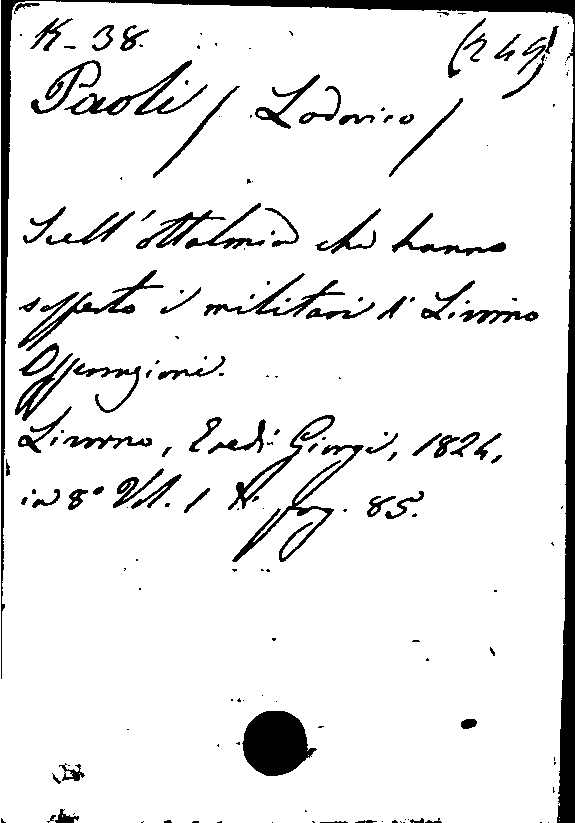 K-38. (249)
Paoli / Lodovico /
Sull'ottalmia che hanno
sofferto i militari di Livorno
Osservazioni.
Livorno, Eredi Giorgi, 1824,
in 8° Vol. 1 di pag. 85.